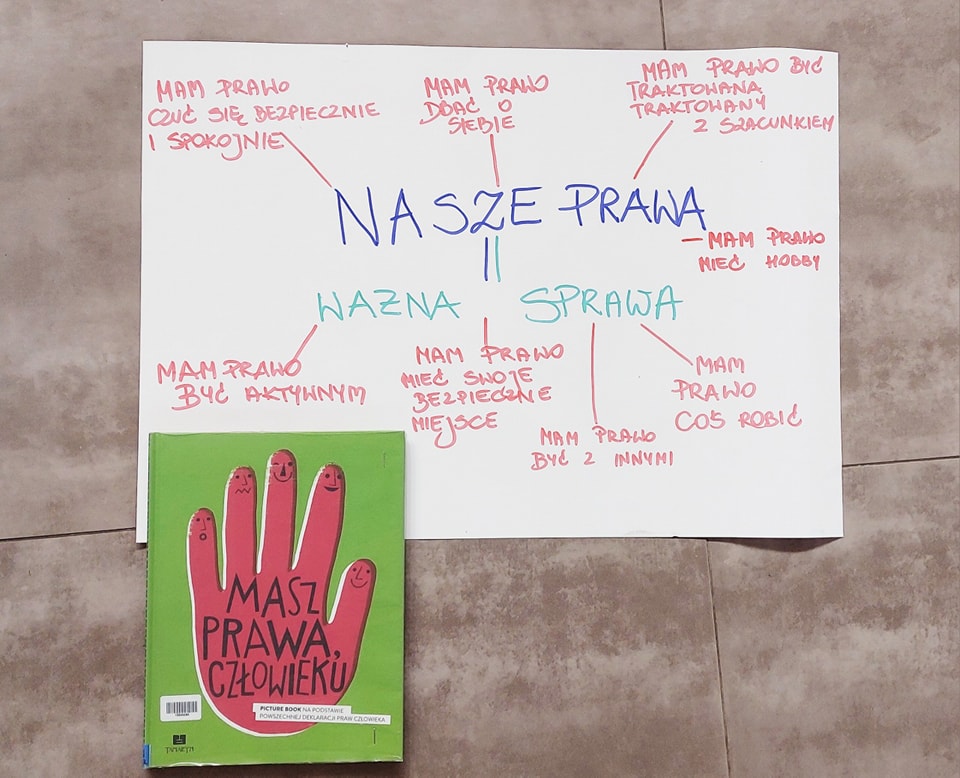 MAM PRAWO
CZUĆ SIĘ BEZPIECZNIE
I SPOKOJNIE
MAM PRAWO
DBAĆ O
SIEBIE
MAM PRAWO BYĆ
TRAKTOWANA
TRAKTOWANY
Z SZACUNKIEM
NASZE PRAWA
— MAM PRAWO
MIEĆ HOBBY
WAZNA SPRAWA
MAM PRAWO
BYĆ AKTYWNYM
MAM PRAWO
MIEĆ SWOJE
BEZPIECZNE
MIEJSCE
MAM PRAWO
BYĆ Z INNYMI
MAM
PRAWO
COŚ ROBIĆ
MASZ
PRAWA,
CZŁOWIEKU
PICTURE BOOK NA PODSTAWIE
POWSZECHNEJ DEKLARACJI PRAW CZŁOWIEKA